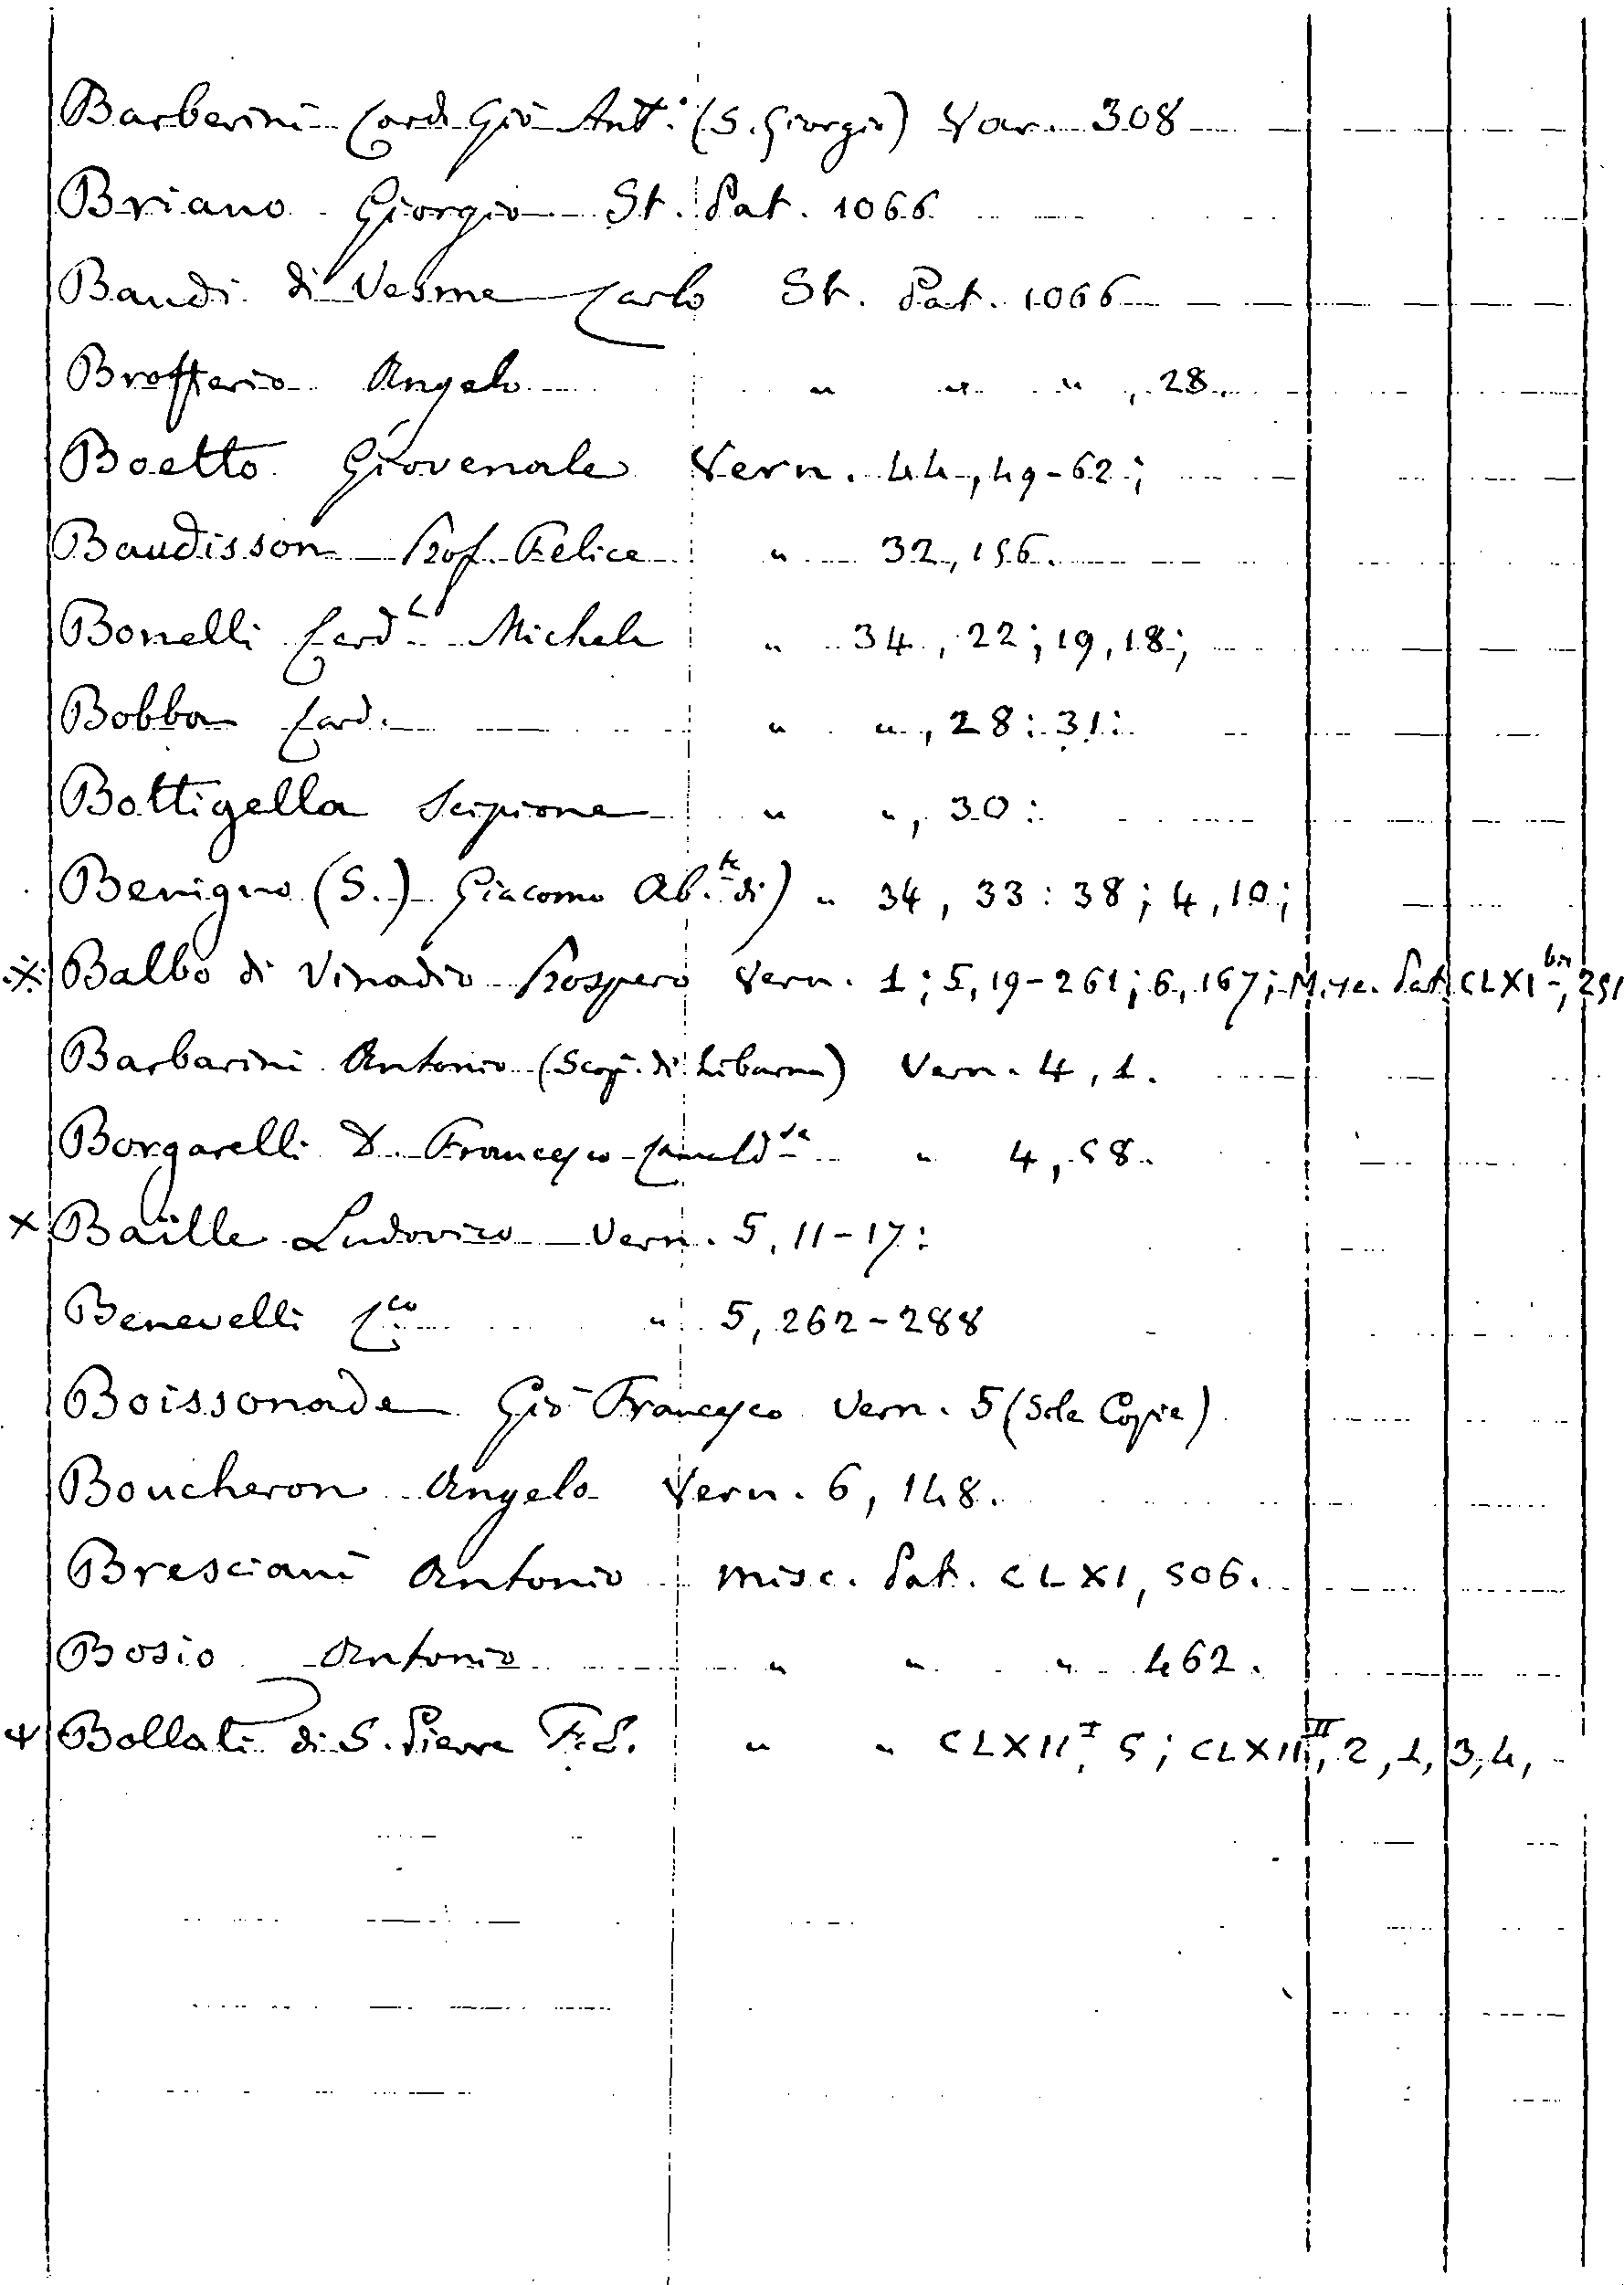 Barberini Card. Gio Ant.° (S. Giorgio) Var. 308
Briano Giorgio St. Pat. 1066
Baudi di Vesme Carlo St. Pat. 1066
Brofferio Angelo " " " , 28.
Boetto Giovenale Vern. 44, 49-62;
Baudisson Prof. Felice " 32, 156.
Bonelli Card.l Michele " 34, 22; 19, 18;
Bobba Card. " " , 28: 31:
Bottigella Scipione " " , 30:
Benigno (S.) Giacomo Ab.te di) " 34, 33: 38; 4, 10;
※ Balbo di Vinadio Prospero Vern. 1; 5, 19-261; 6, 167; Misc. Pat. CLXI bis, 251
Barbarini Antonio (Scop. di Libarna) Vern. 4, 1.
Borgarelli D. Francesco Camald.se " 4, 58.
× Baille Ludovico Vern. 5, 11-17:
Benevelli C.co " 5, 262-288
Boissonade Gio Francesco Vern. 5 (Sole Copie)
Boucheron Angelo Vern. 6, 148.
Bresciani Antonio Misc. Pat. CLXI, 506.
Bosio Antonio " " " 462.
Bollati di S. Pierre F. E. " " CLXII I, 5; CLXII II, 2, 1, 3, 4,